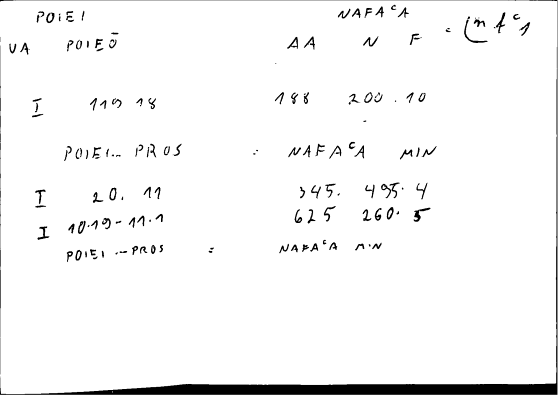 POIEI NAFAᶜA
VA POIEŌ AA N F = (nfᶜ1
I 119 18 188 200.10
POIEI... PROS = NAFAᶜA MIN
I 20. 11 345. 495.4
I 10.19-11.1 625 260.5
POIEI ...PROS = NAFAᶜA MIN